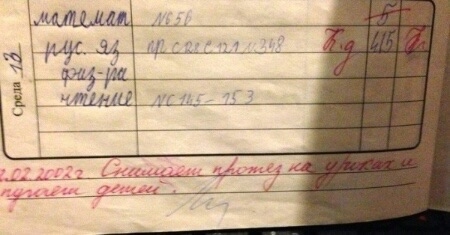 Среда 13
математ №656 5
рус. яз 348 К.д 4/5
физ-ра
чтение №С 145-153
2.02.2002г Снимает протез на уроках и
пугает детей.